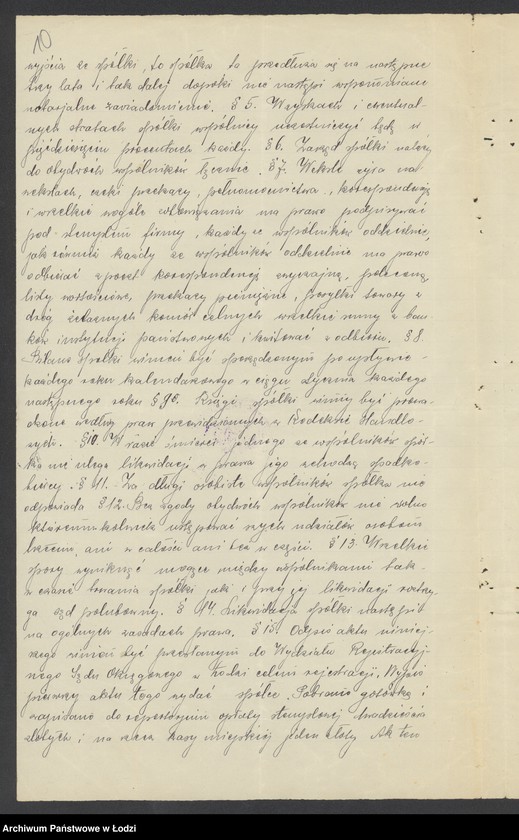 10
wyjścia ze spółki, to spółka ta przedłuża się na następne
trzy lata i tak dalej dopóki nie nastąpi wspomniane
notarjalne zawiadomienie. § 5. W zyskach i ewentual-
nych stratach spółki wspólnicy uczestniczyć będą w
pięćdziesięciu procentach każdy. § 6. Zarząd spółki należy
do obydwóch wspólników łącznie. § 7. Weksle, żyra na
wekslach, czeki przekazy, pełnomocnictwa, korespondencję
i wszelkie wogóle zobowiązania ma prawo podpisywać
pod stemplem firmy, każdy ze wspólników oddzielnie,
jak również każdy ze wspólników oddzielnie ma prawo
odbierać z poczt korespondencję zwyczajną, poleconą,
listy wartościowe, przekazy pieniężne, posyłki towary z
dróg żelaznych komór celnych wszelkie sumy z ban-
ków instytucji państwowych i kwitować z odbioru. § 8.
Bilans spółki winien być sporządzonym po upływie
każdego roku kalendarzowego w ciągu stycznia każdego
następnego roku § 9. Księgi spółki winny być prowa-
dzone według praw przewidzianych w Kodeksie Handlo-
wym. § 10. W razie śmierci jednego ze wspólników spół-
ka nie ulega likwidacji a prawa jego wchodzą spadko-
biercy. § 11. Za długi osobiste wspólników spółka nie
odpowiada § 12. Bez zgody obydwóch wspólników nie wolno
któremukolwiek ustępować swych udziałów osobom
trzecim, ani w całości ani też w części. § 13. Wszelkie
spory wyniknąć mogące między wspólnikami tak
w czasie trwania spółki jak i przy jej likwidacji rozstrzy-
ga sąd polubowny. § 14. Likwidacja spółki nastąpi
na ogólnych zasadach prawa. § 15. Odpis aktu niniej-
szego winien być przesłanym do Wydziału Rejestracyj-
nego Sądu Okręgowego w Łodzi celem rejestracji. Wypis
pierwszy aktu tego wydać spółce. Pobrano gotówką i
zapisano do repertorjum opłaty stemplowej dwadzieścia
złotych i na rzecz kasy miejskiej jeden złoty Akt ten
Archiwum Państwowe w Łodzi